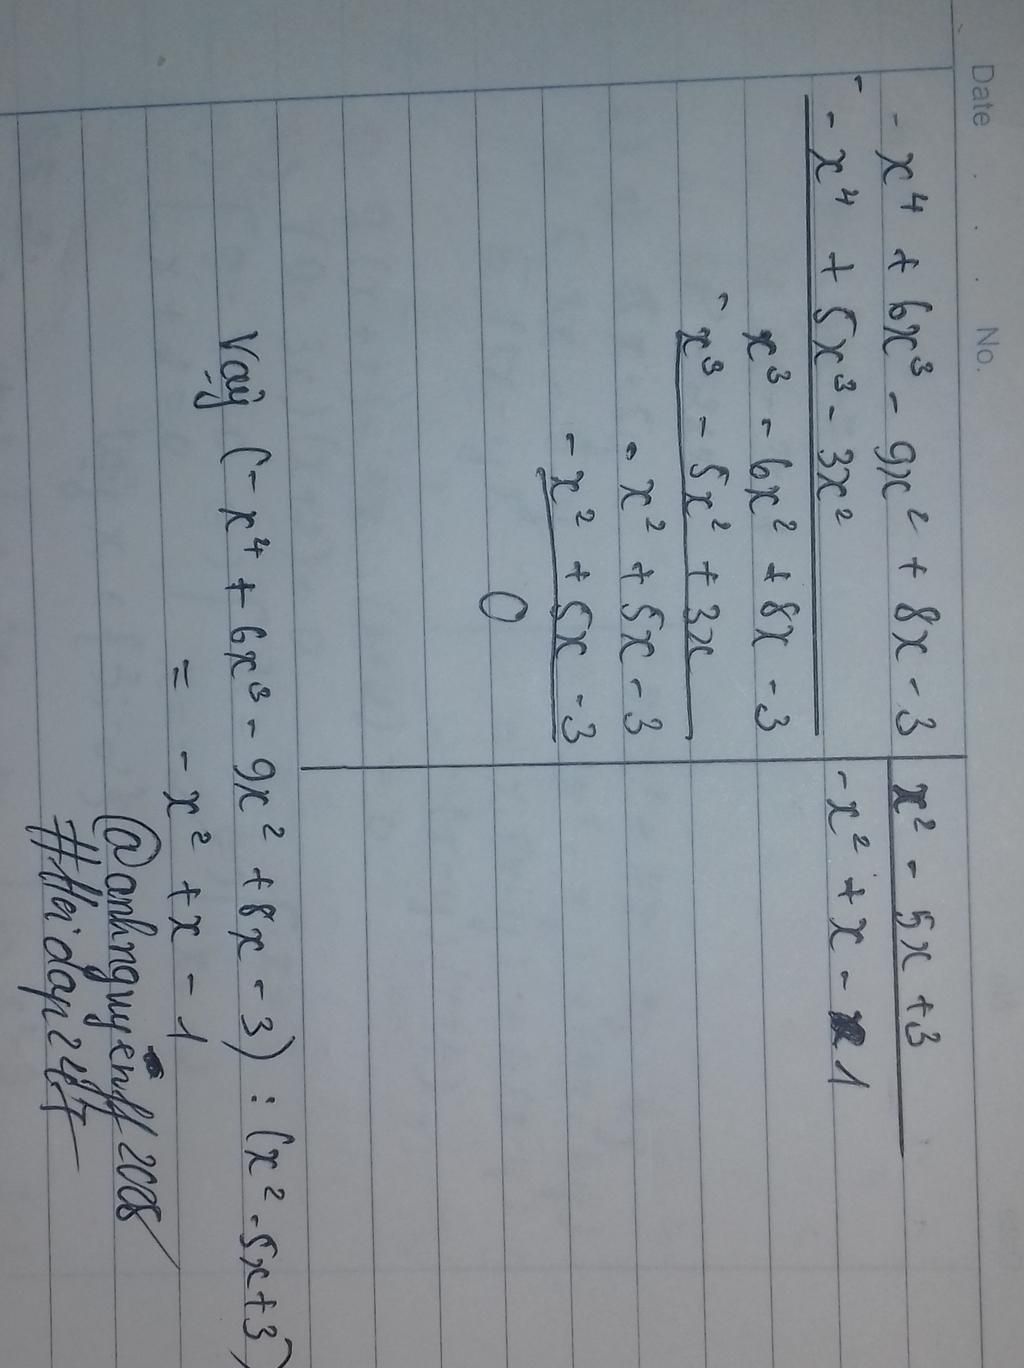 Date . . . No.
- x⁴ + 6x³ - 9x² + 8x - 3 | x² - 5x + 3
- - x⁴ + 5x³ - 3x² | - x² + x - 1
x³ - 6x² + 8x - 3
- x³ - 5x² + 3x
- x² + 5x - 3
- x² + 5x - 3
0
Vậy (- x⁴ + 6x³ - 9x² + 8x - 3) : (x² - 5x + 3)
= - x² + x - 1
@anhnguyenff2008
#Hoidap247